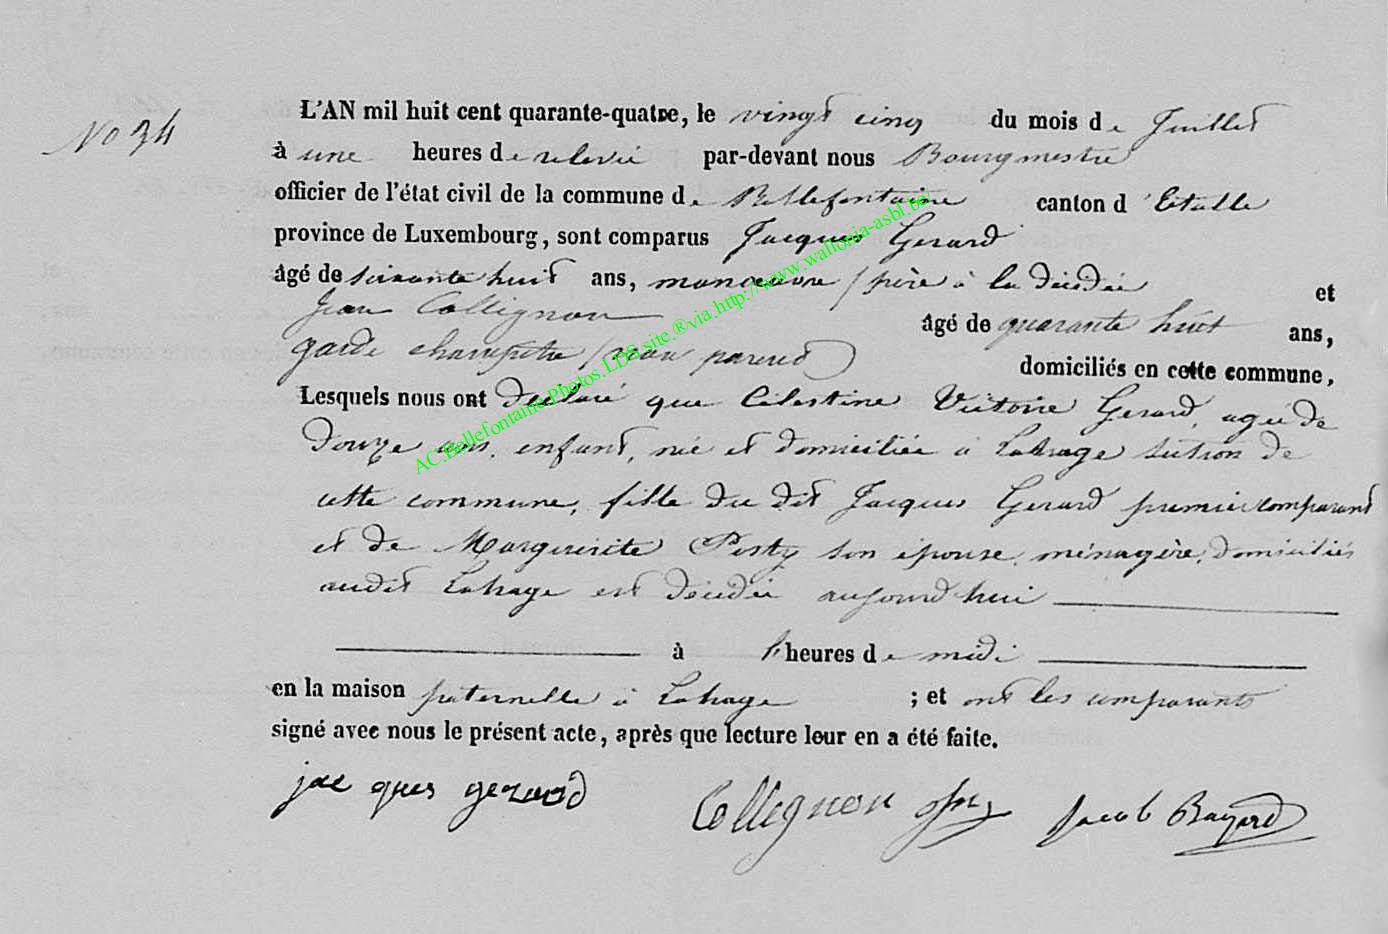 No 34
L'AN mil huit cent quarante-quatre, le vingt cinq du mois de Juillet
à une heures de relevée par-devant nous Bourgmestre
officier de l'état civil de la commune de Bellefontaine canton d'Etalle
province de Luxembourg, sont comparus Jacques Gerard
âgé de soixante huit ans, manoeuvre (père à la décédée et
Jean Collignon âgé de quarante huit ans,
garde champetre (non parent) domiciliés en cette commune,
Lesquels nous ont declaré que Célestine Victoire Gerard, agée de
douze ans, enfant, née et domiciliée à Lahage section de
cette commune, fille du dit Jacques Gerard premier comparant
et de Marguerite Posty son épouse, ménagère, domiciliés
audit Lahage est décédée aujourd'hui
à heures de midi
en la maison paternelle à Lahage ; et ont les comparants
signé avec nous le présent acte, après que lecture leur en a été faite.
jac ques gerard Collignon Jacob Bayard
AC.Bellefontaine.Photos.LDS.site.®via.http://www.wallonia-asbl.be/